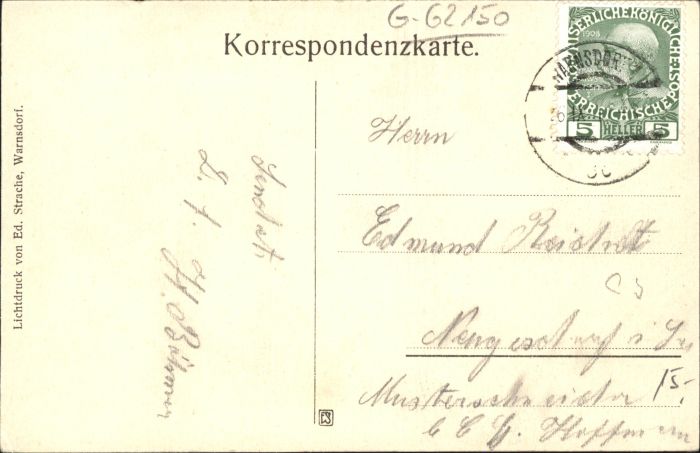 G-62150
Korrespondenzkarte.
KAISERLICHE KÖNIGLICHE
ÖSTERREICHISCHE POST
1908
5 HELLER 5
WARNSDORF
Herrn
Edmund Reichelt
Neugersdorf i. Sa
Musterschneider
b C. G. Hoffmann
15.-
Sendet
H. Böhmer
Lichtdruck von Ed. Strache, Warnsdorf.